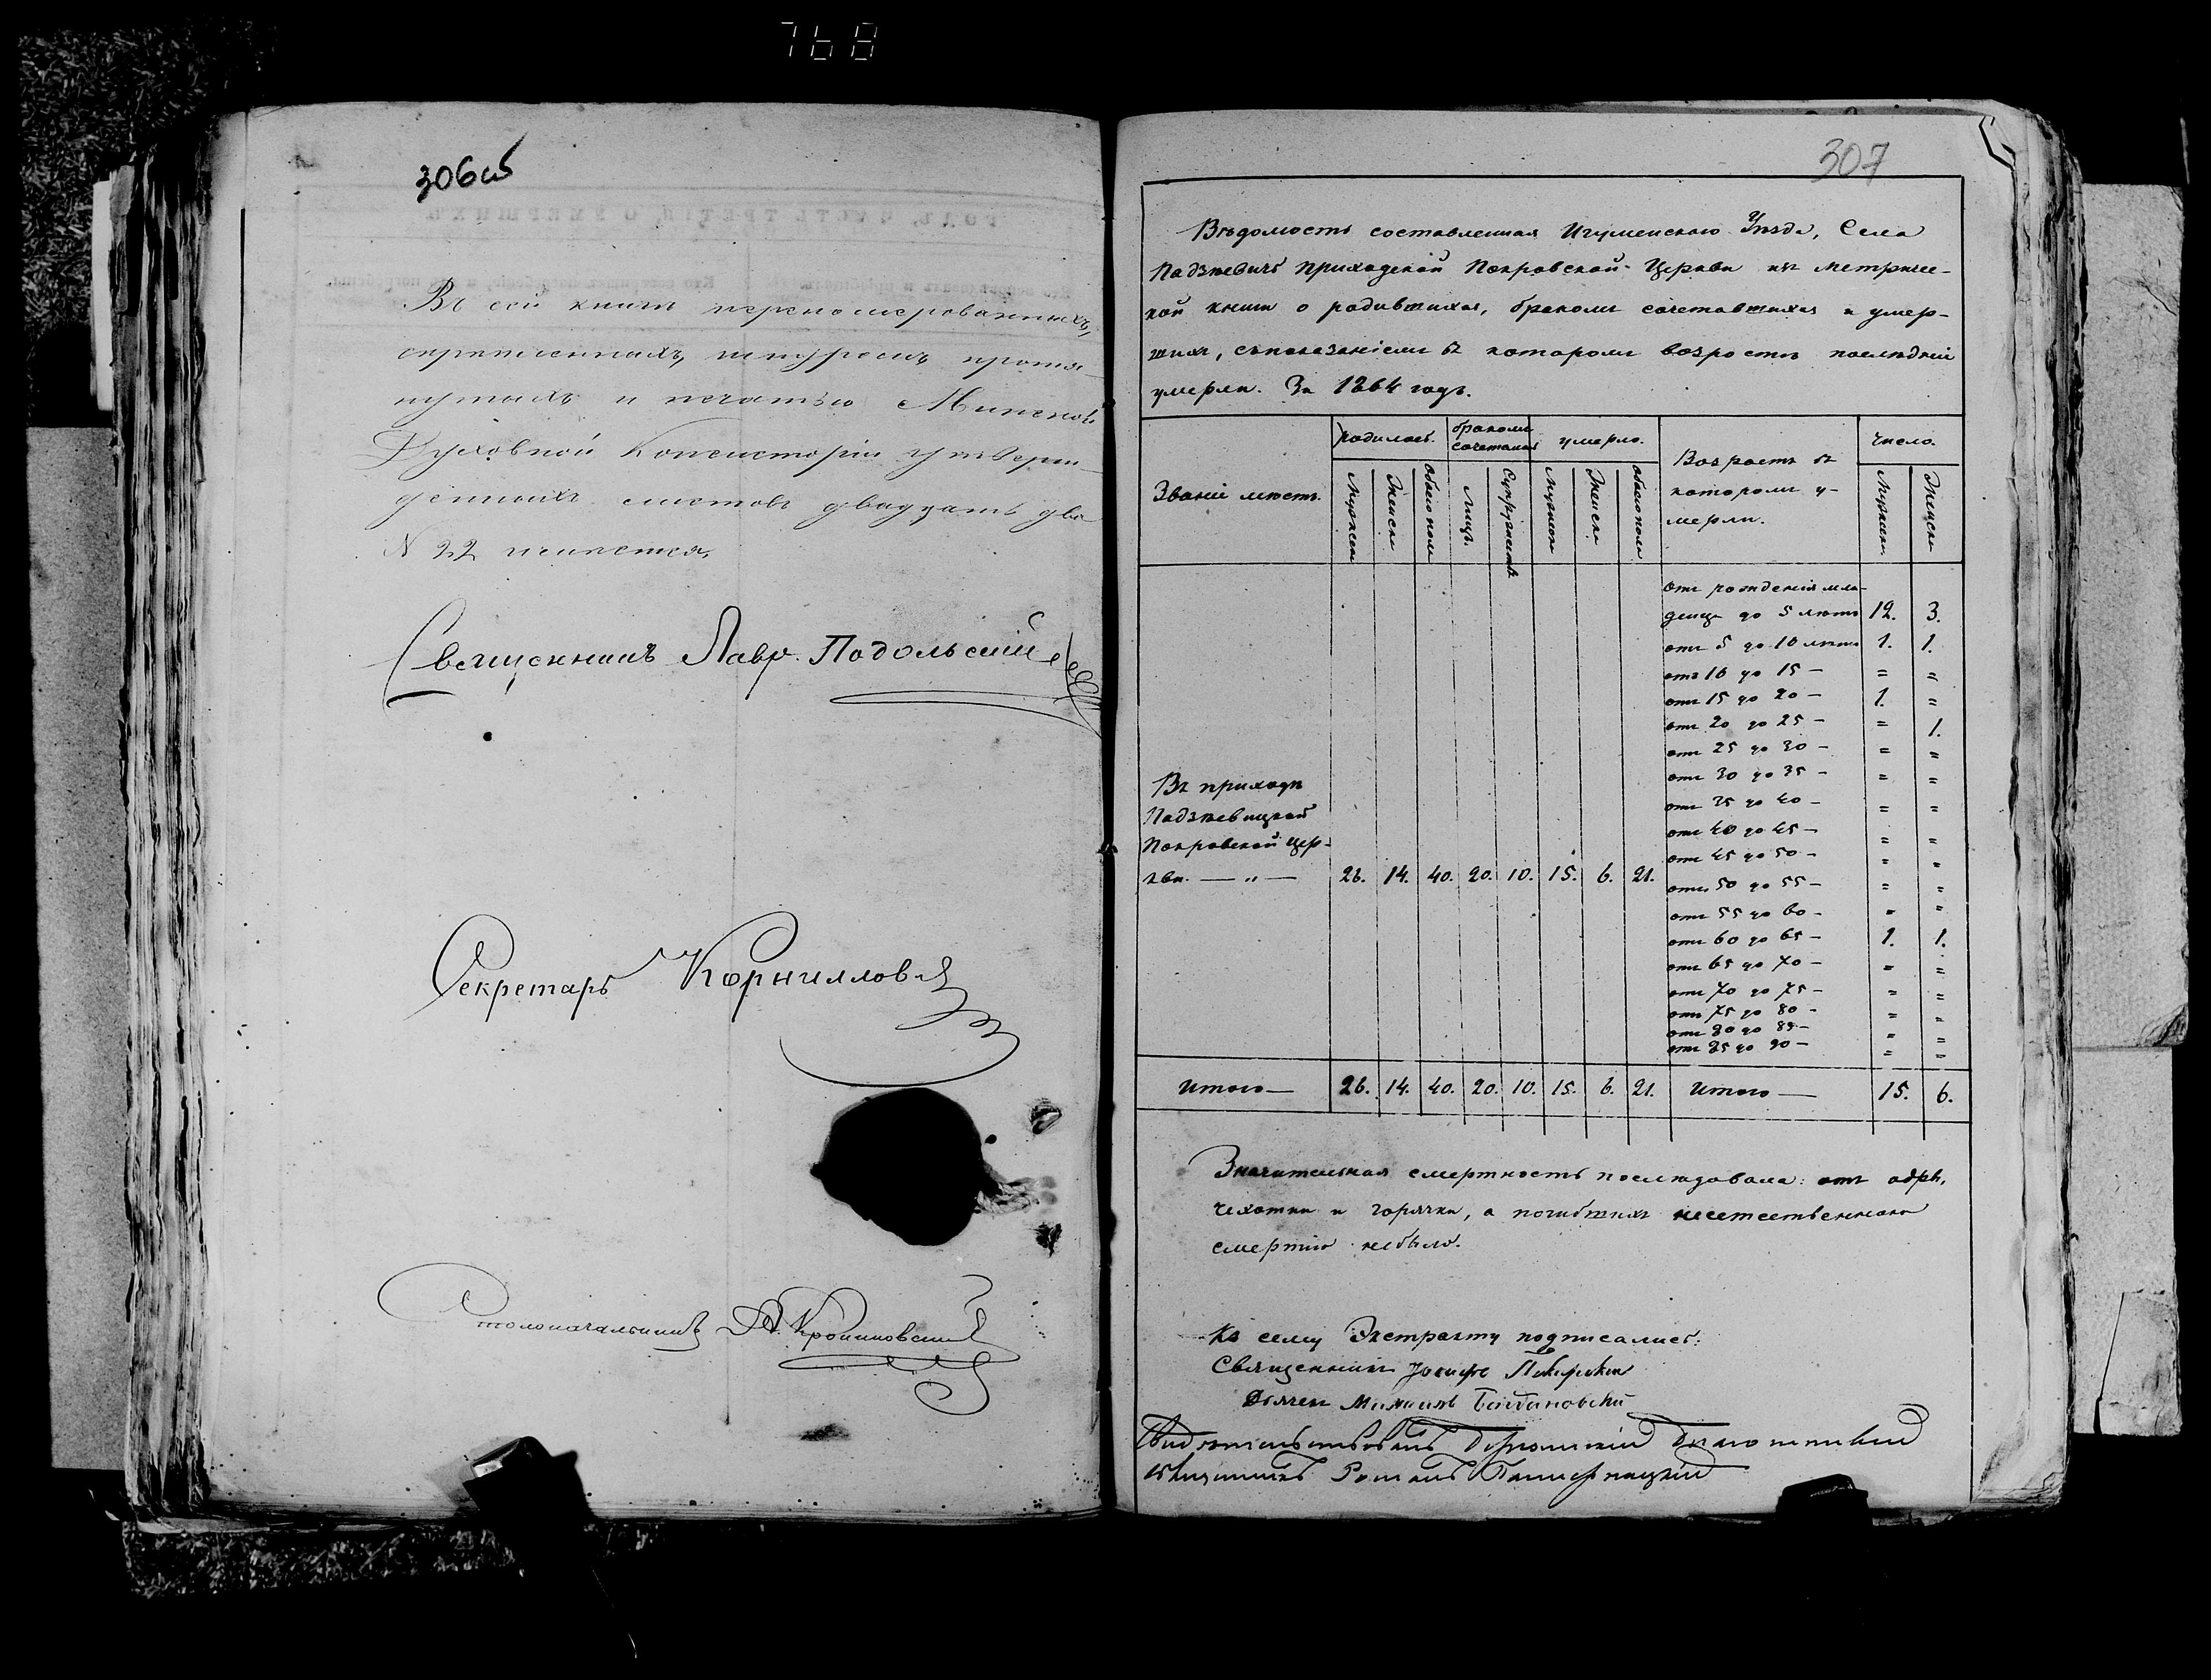 768
306об
Въ сей книгѣ перенумерованныхъ,
скрѣпленныхъ, шнуромъ протя-
нутыхъ и печатью Минской
Духовной Консисторіи утверж-
денныхъ листовъ двадцать два
№ 22 имѣется.
Священникъ Лавр. Подольскій
Секретарь Корниловъ
Столоначальникъ А.
307
Вѣдомость составленная Игуменскаго Уѣзда, Села
Падзневичъ Приходской Покровской Церкви къ метричес-
кой книги о родившихся, бракомъ сочетавшихся и умер-
шихъ, съ показаніемъ въ которомъ возрастѣ послѣдніи
умерли. За 1864 годъ.
Званіе мѣстъ.
родилось.
бракомъ сочеталось
умерло.
Возрастъ въ
которомъ у-
мерли.
число.
Мужеск Женск обоего пола Лицъ. Супружествъ Мужеск Женск обоего пола Мужеск. Женск
отъ рожденія мла-
денц. до 5 лѣтъ 12. 3.
отъ 5 до 10 лѣтъ 1. 1.
отъ 10 до 15 — = =
отъ 15 до 20 — 1. =
отъ 20 до 25 — = 1.
отъ 25 до 30 — = =
отъ 30 до 35 — = =
отъ 35 до 40 — = =
отъ 40 до 45 — = =
отъ 45 до 50 — = =
отъ 50 до 55 — = =
отъ 55 до 60 — = =
отъ 60 до 65 — 1. 1.
отъ 65 до 70 — = =
отъ 70 до 75 — = =
отъ 75 до 80 — = =
отъ 80 до 85 — = =
отъ 85 до 90 — = =
Въ приходѣ
Падзневицкой
Покровской Цер-
кви. — „ — 26. 14. 40. 20. 10. 15. 6. 21.
Итого — 26. 14. 40. 20. 10. 15. 6. 21. Итого — 15. 6.
Значительная смертность послѣдовала: отъ одры,
чехотки и горячки, а погибшихъ неестественною
смертію небыло.
Къ сему Экстракту подписались:
Священникъ Іосифъ
Дьячек Михаилъ
Свидѣтельствовалъ Благочинный
священникъ Романъ